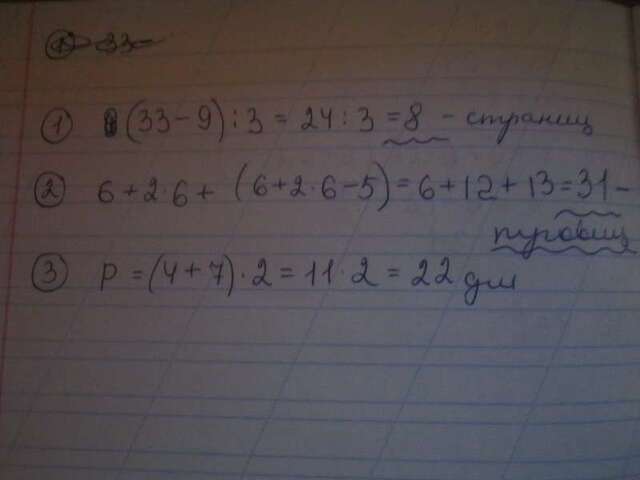 ① (33-9):3=24:3=8 - страниц
② 6+2·6+(6+2·6-5)=6+12+13=31-
пуговиц
③ P=(4+7)·2=11·2=22 дм